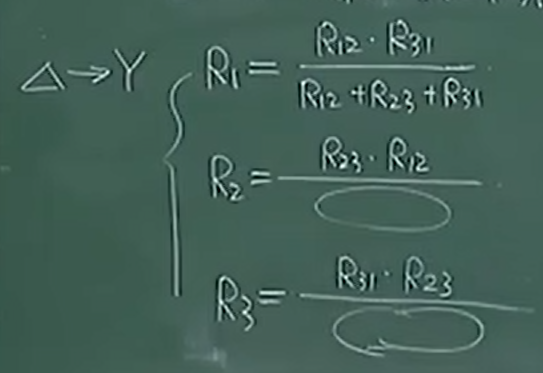 △→Y { R1 = R12 · R31 / R12 + R23 + R31
R2 = R23 · R12 /
R3 = R31 · R23 /